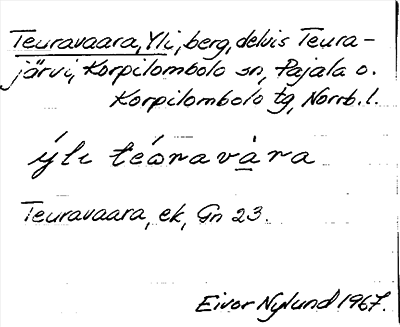 Teuravaara, Yli, berg, delvis Teura-
järvi, Korpilombolo sn, Pajala o.
Korpilombolo tg, Norrb. l.
ýli téoravàra
Teuravaara, ek, Gn 23.
Eivor Nylund 1967.